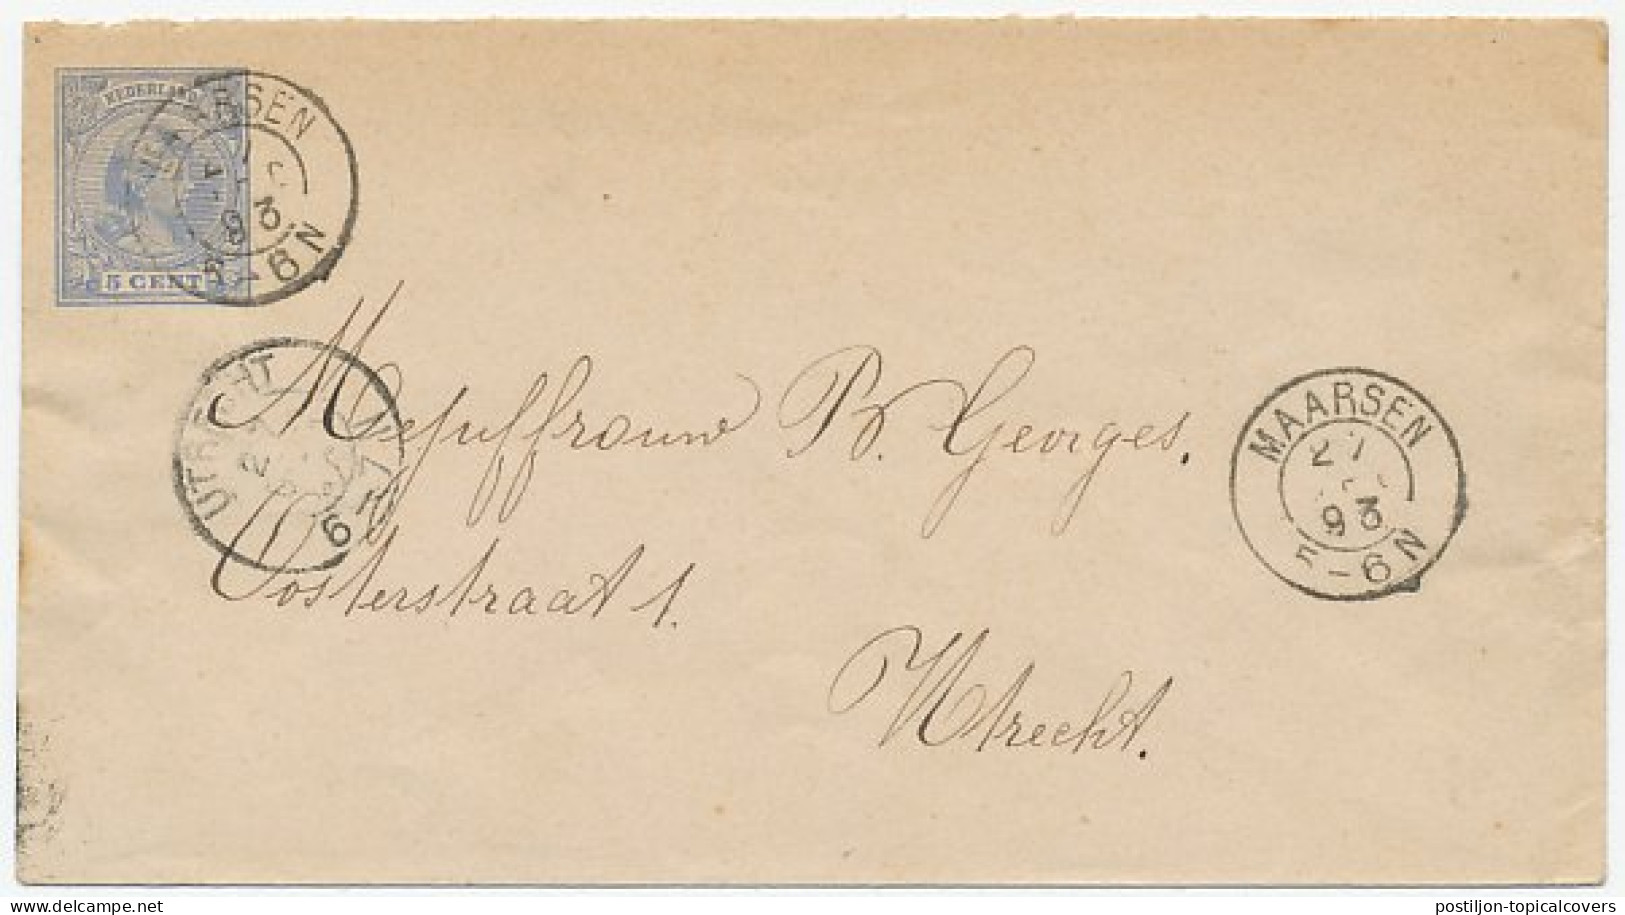 NEDERLAND
5 CENT
MAARSEN
93
5-6N
UTRECHT
Mejuffrouw B. Georges.
Oosterstraat 1.
Utrecht.
MAARSEN
27
93
5-6N
delcampe.net
postiljon-topicalcovers